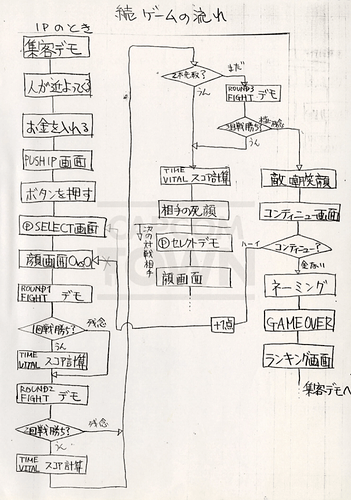 続 ゲームの流れ
1Pのとき
集客デモ
人が近よってくる
お金を入れる
PUSH 1P 画面
ボタンを押す
Ⓟ SELECT画面
顔画面
ROUND1
FIGHT デモ
1回戦勝ち?
残念
うん
TIME
VITAL スコア計算
ROUND2
FIGHT デモ
2回戦勝ち?
残念
うん
TIME
VITAL スコア計算
まだ
うん
ROUND3
FIGHT デモ
3回戦勝ち?
残念
うん
TIME
VITAL スコア計算
相手の死顔
Ⓟセレクトデモ
顔画面
次の対戦相手
敵 嘲笑顔
コンティニュー画面
コンティニュー?
ハーイ
+1点
金ない
ネーミング
GAME OVER
ランキング画面
集客デモへ
CAPCOM
TOWN